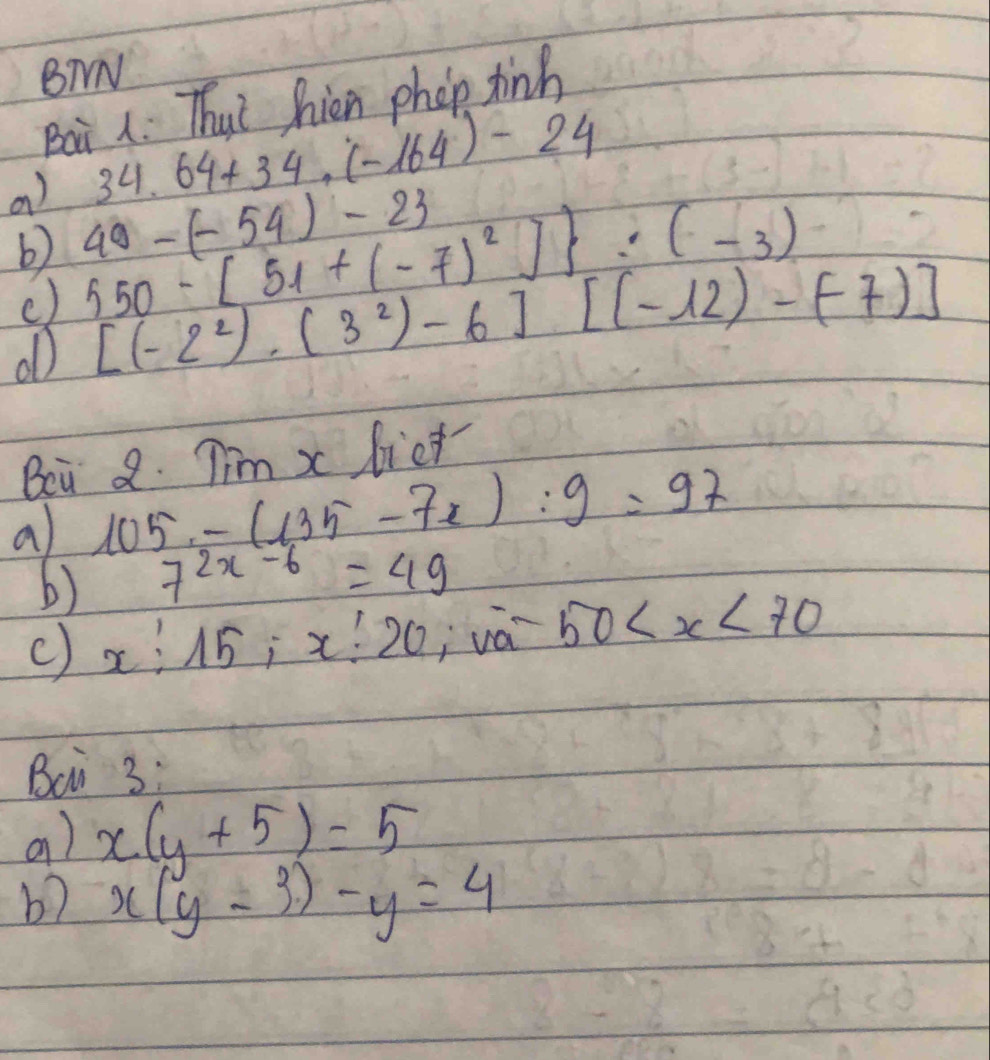 BTVN
Bài 1: Thực hiện phép tính
a) 34. 64 + 34 . (-164) - 24
b) 49 - (-54) - 23
c) {50 - [ 51 + (-7)² ] } : (-3)
d) [(-2²) . (3²) - 6 ] [(-12) - (-7)]
Bài 2. Tìm x biết
a) 105 - (135 - 7x) : 9 = 97
b) 7^{2x-6} = 49
c) x ⋮ 15 ; x ⋮ 20; và 50 < x < 70
Bài 3:
a) x.(y + 5) = 5
b) x(y - 3) - y = 4